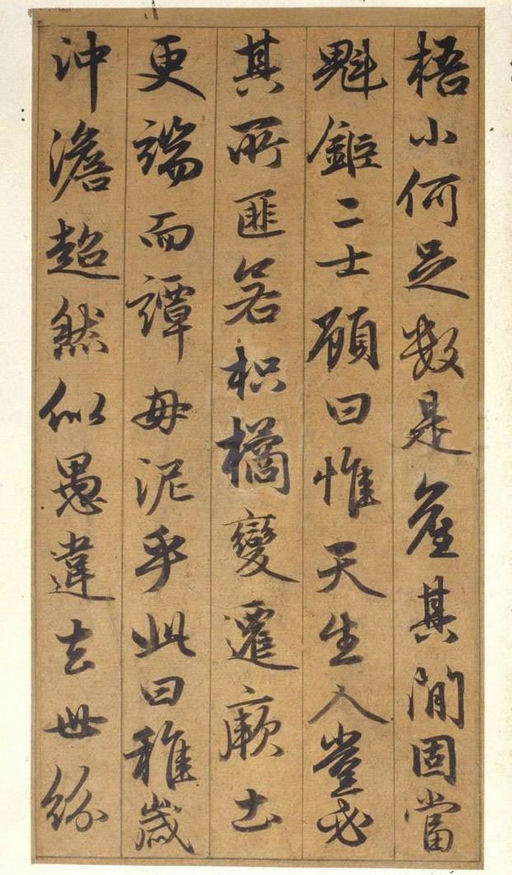 梧小何足數是產其閒固當
魁鉅二士顧曰惟天生人豈必
其所匪若枳橘變遷厥土
更端而譚毋泥乎此曰稚歲
沖澹超然似愚違去世紛